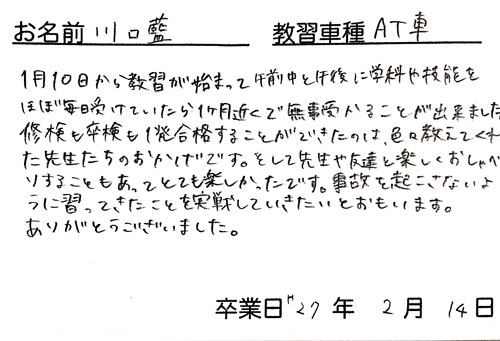 お名前 川口藍 教習車種 AT車
1月10日から教習が始まって午前中と午後に学科や技能を
ほぼ毎日受けていたら1ヶ月近くで無事受かることが出来ました
修検も卒検も1発合格することができたのは、色々教えてくれ
た先生たちのおかげです。そして先生や友達と楽しくおしゃべ
りすることもあってとても楽しかったです。事故を起こさないよ
うに習ってきたことを実戦していきたいとおもいます。
ありがとうございました。
卒業日 H27年 2月 14日